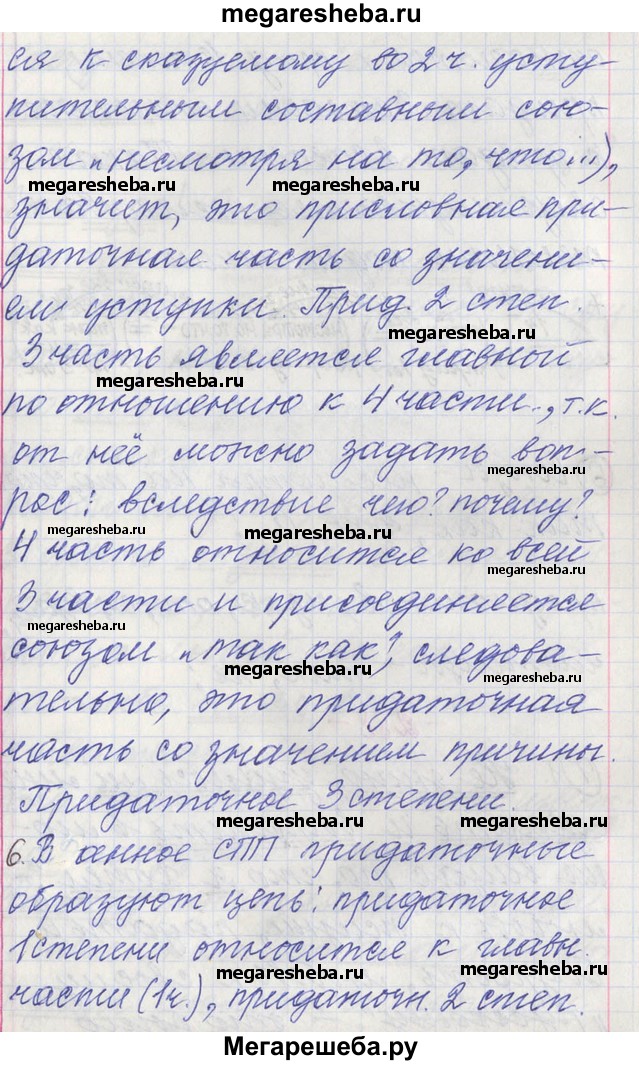 megaresheba.ru megaresheba.ru
ся к сказуемому во 2 ч. усту-
пительным составным сою-
зом „несмотря на то, что...),
megaresheba.ru megaresheba.ru
значит, это присловная при-
даточная часть со значени-
ем уступки. Прид. 2 степ.
megaresheba.ru
3 часть является главной
megaresheba.ru
по отношению к 4 части., т.к.
от неё можно задать воп-
megaresheba.ru
рос: вследствие чего? почему?
megaresheba.ru megaresheba.ru
4 часть относится ко всей
megaresheba.ru
3 части и присоединяется
megaresheba.ru
союзом „так как", следова-
megaresheba.ru megaresheba.ru
тельно, это придаточная
часть со значением причины.
Придаточное 3 степени.
megaresheba.ru megaresheba.ru
6. В анное СПП придаточные
образуют цепь: придаточное
1 степени относится к главн.
megaresheba.ru megaresheba.ru
части (1ч.), придаточн. 2 степ.
Мегарешеба.ру